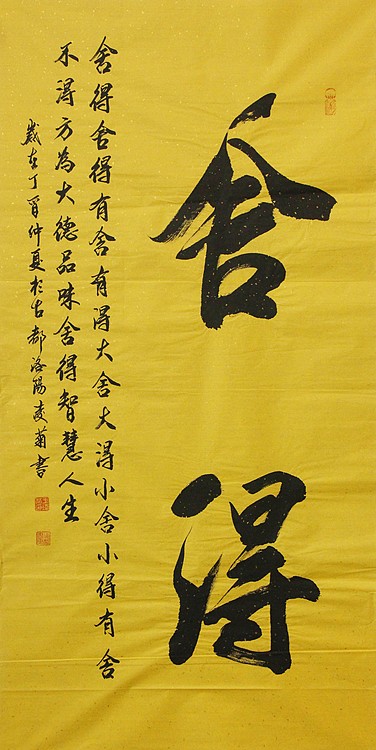 舍得
舍得舍得有舍有得大舍大得小舍小得有舍
不得方為大德品味舍得智慧人生
歲在丁酉仲夏於古都洛陽菊書